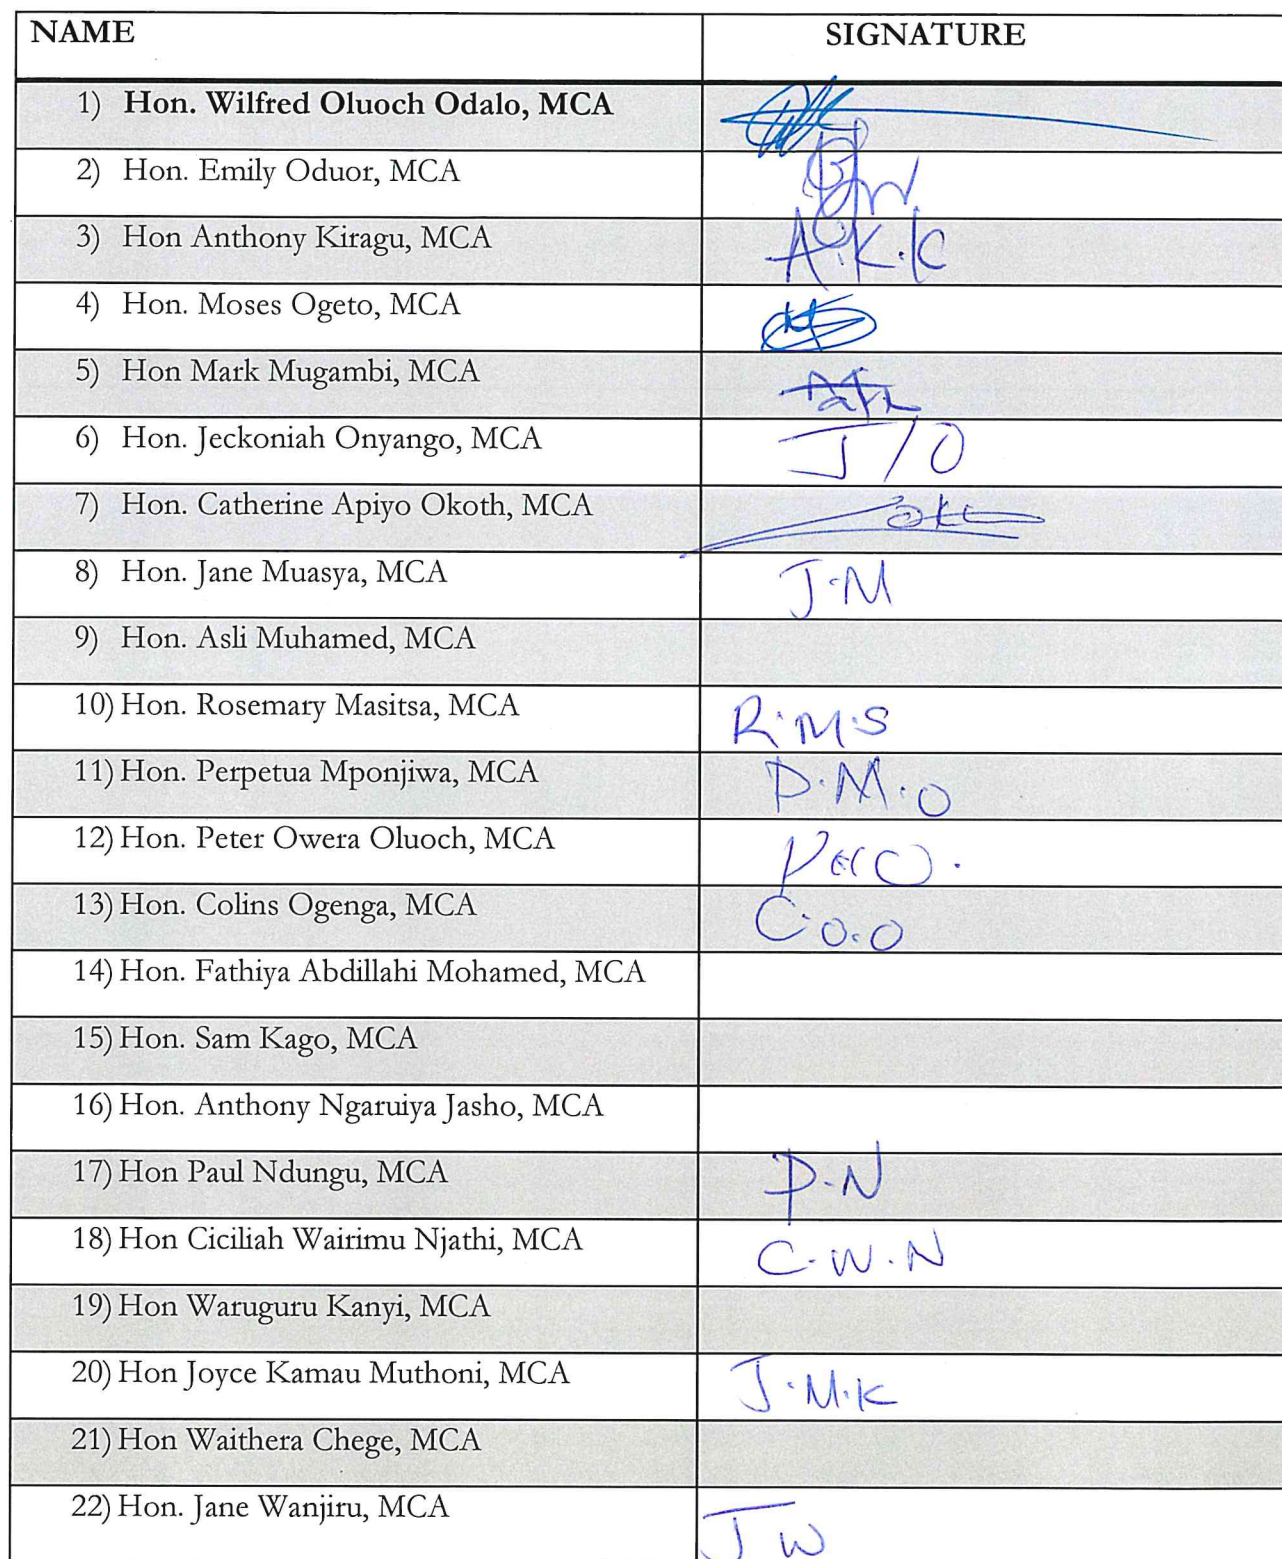 NAME SIGNATURE
1) Hon. Wilfred Oluoch Odalo, MCA
2) Hon. Emily Oduor, MCA
3) Hon Anthony Kiragu, MCA A.K.K
4) Hon. Moses Ogeto, MCA
5) Hon Mark Mugambi, MCA
6) Hon. Jeckoniah Onyango, MCA J/O
7) Hon. Catherine Apiyo Okoth, MCA
8) Hon. Jane Muasya, MCA J.M
9) Hon. Asli Muhamed, MCA
10) Hon. Rosemary Masitsa, MCA R.M.S
11) Hon. Perpetua Mponjiwa, MCA P.M.O
12) Hon. Peter Owera Oluoch, MCA
13) Hon. Colins Ogenga, MCA C.O.O
14) Hon. Fathiya Abdillahi Mohamed, MCA
15) Hon. Sam Kago, MCA
16) Hon. Anthony Ngaruiya Jasho, MCA
17) Hon Paul Ndungu, MCA P.N
18) Hon Ciciliah Wairimu Njathi, MCA C.W.N
19) Hon Waruguru Kanyi, MCA
20) Hon Joyce Kamau Muthoni, MCA J.M.K
21) Hon Waithera Chege, MCA
22) Hon. Jane Wanjiru, MCA J W